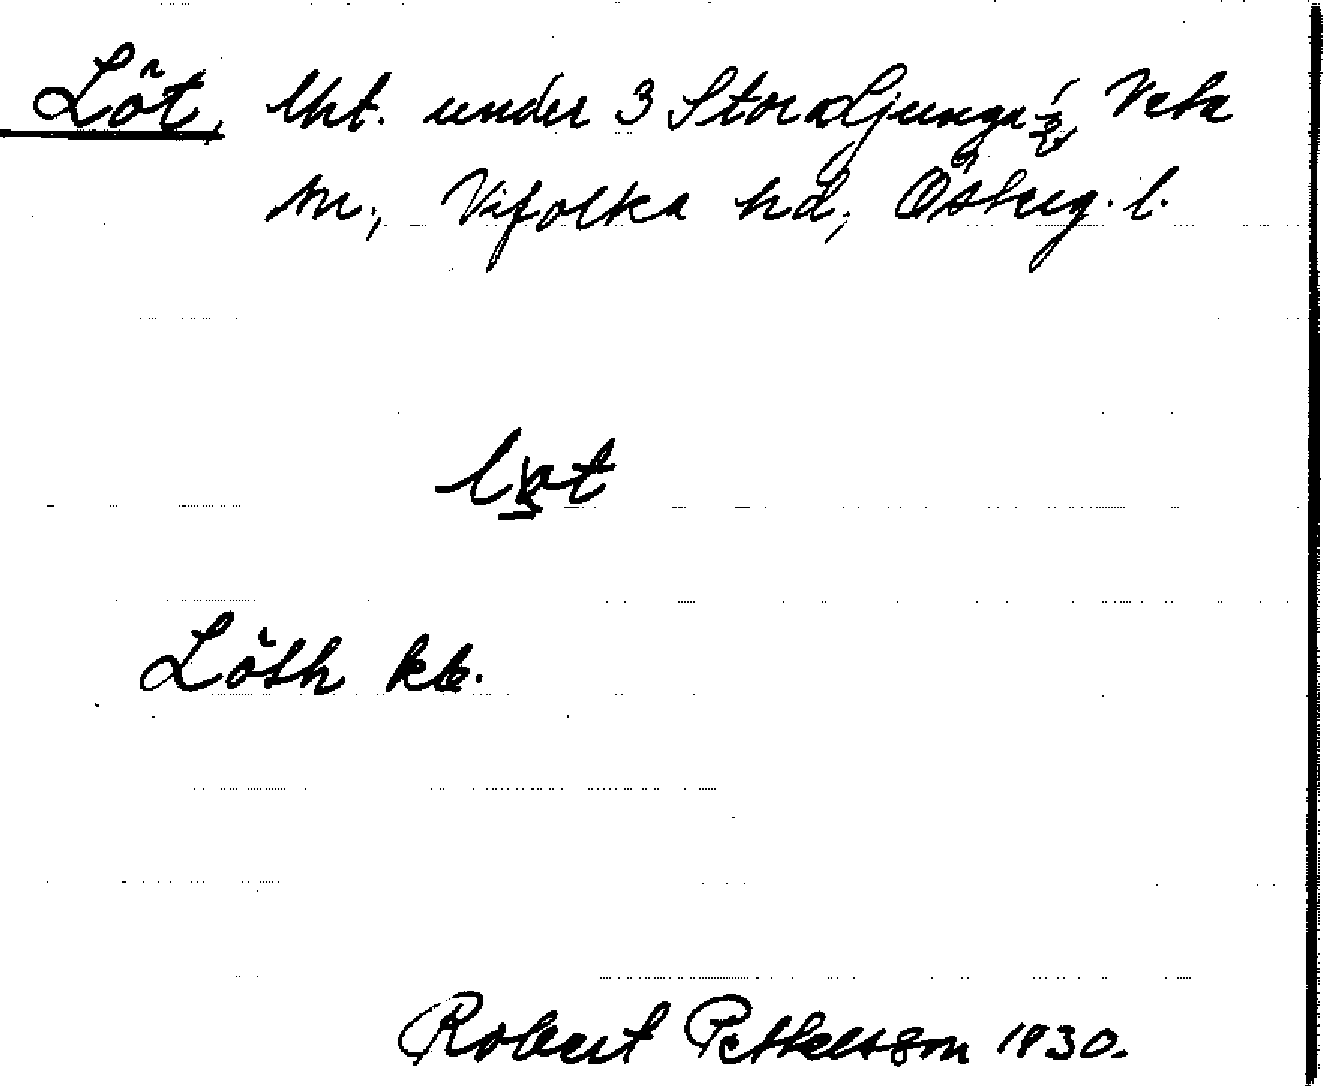 Löt, lht. under 3 Stora Ljunga ½, Veta
sn., Vifolka hd., Österg. l.
Löth kb.
Robert Pettersson 1930.